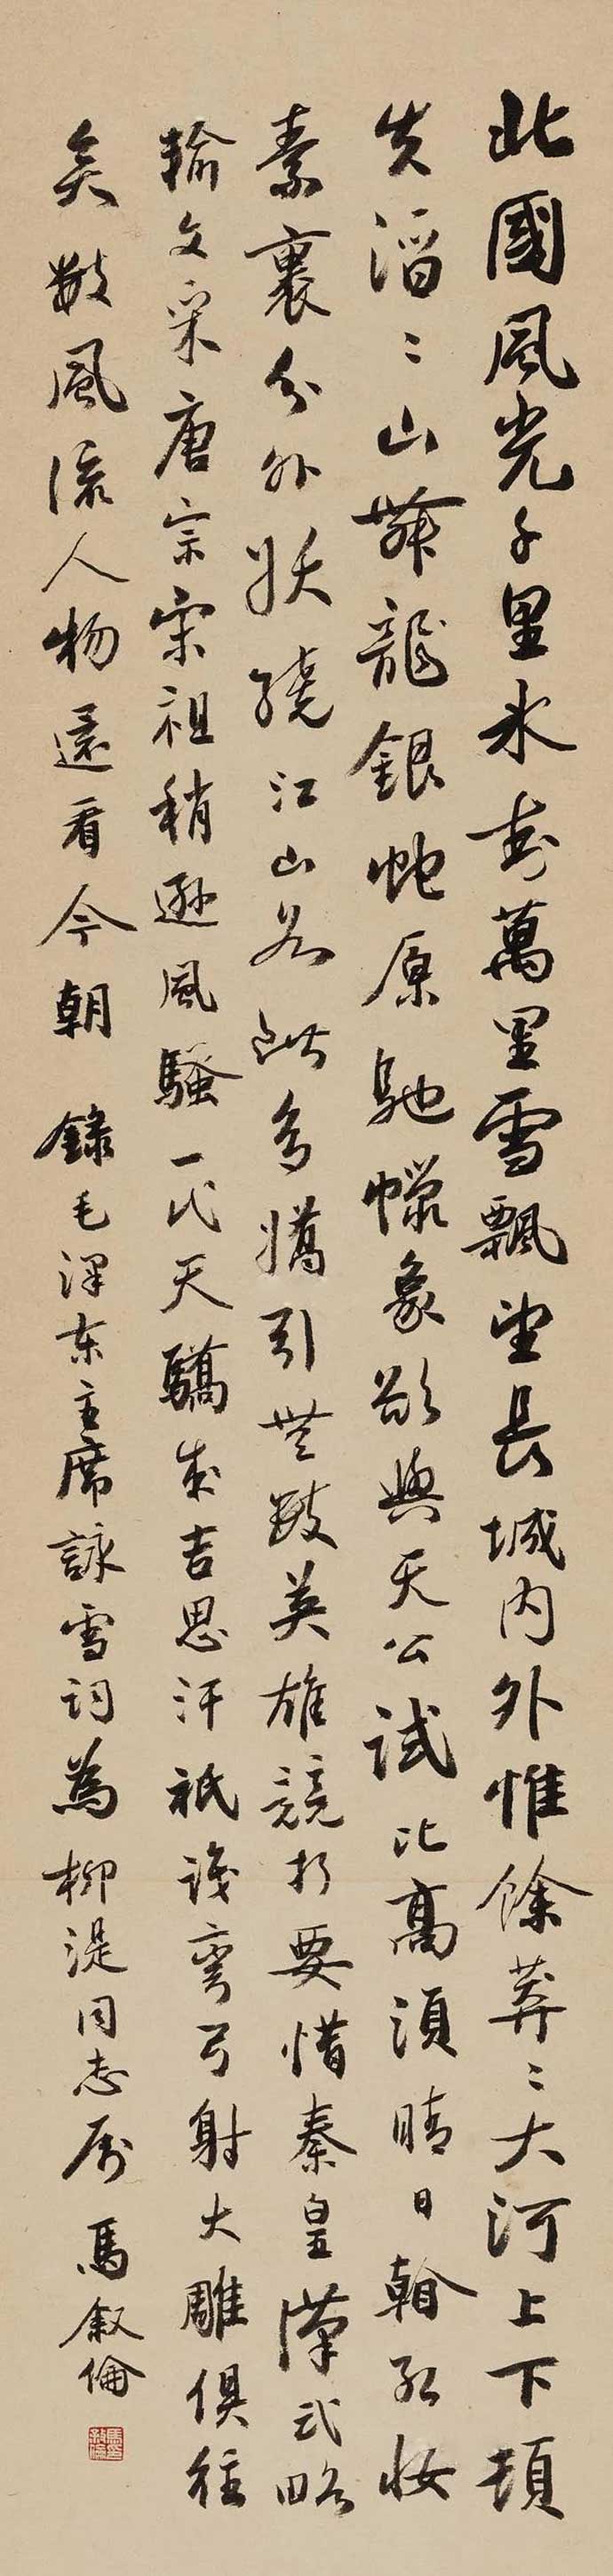 北國風光千里冰封萬里雪飄望長城内外惟餘莽〻大河上下頓
失滔〻山舞龍銀蛇原馳蠟象欲與天公試比高須晴日看紅妝
素裹分外妖嬈江山如此多嬌引無數英雄競折要惜秦皇漢武略
輸文采唐宗宋祖稍遜風騷一代天驕成吉思汗祇識彎弓射大雕俱往
矣數風流人物還看今朝 錄毛澤東主席詠雪詞為柳湜同志属 馬叙倫